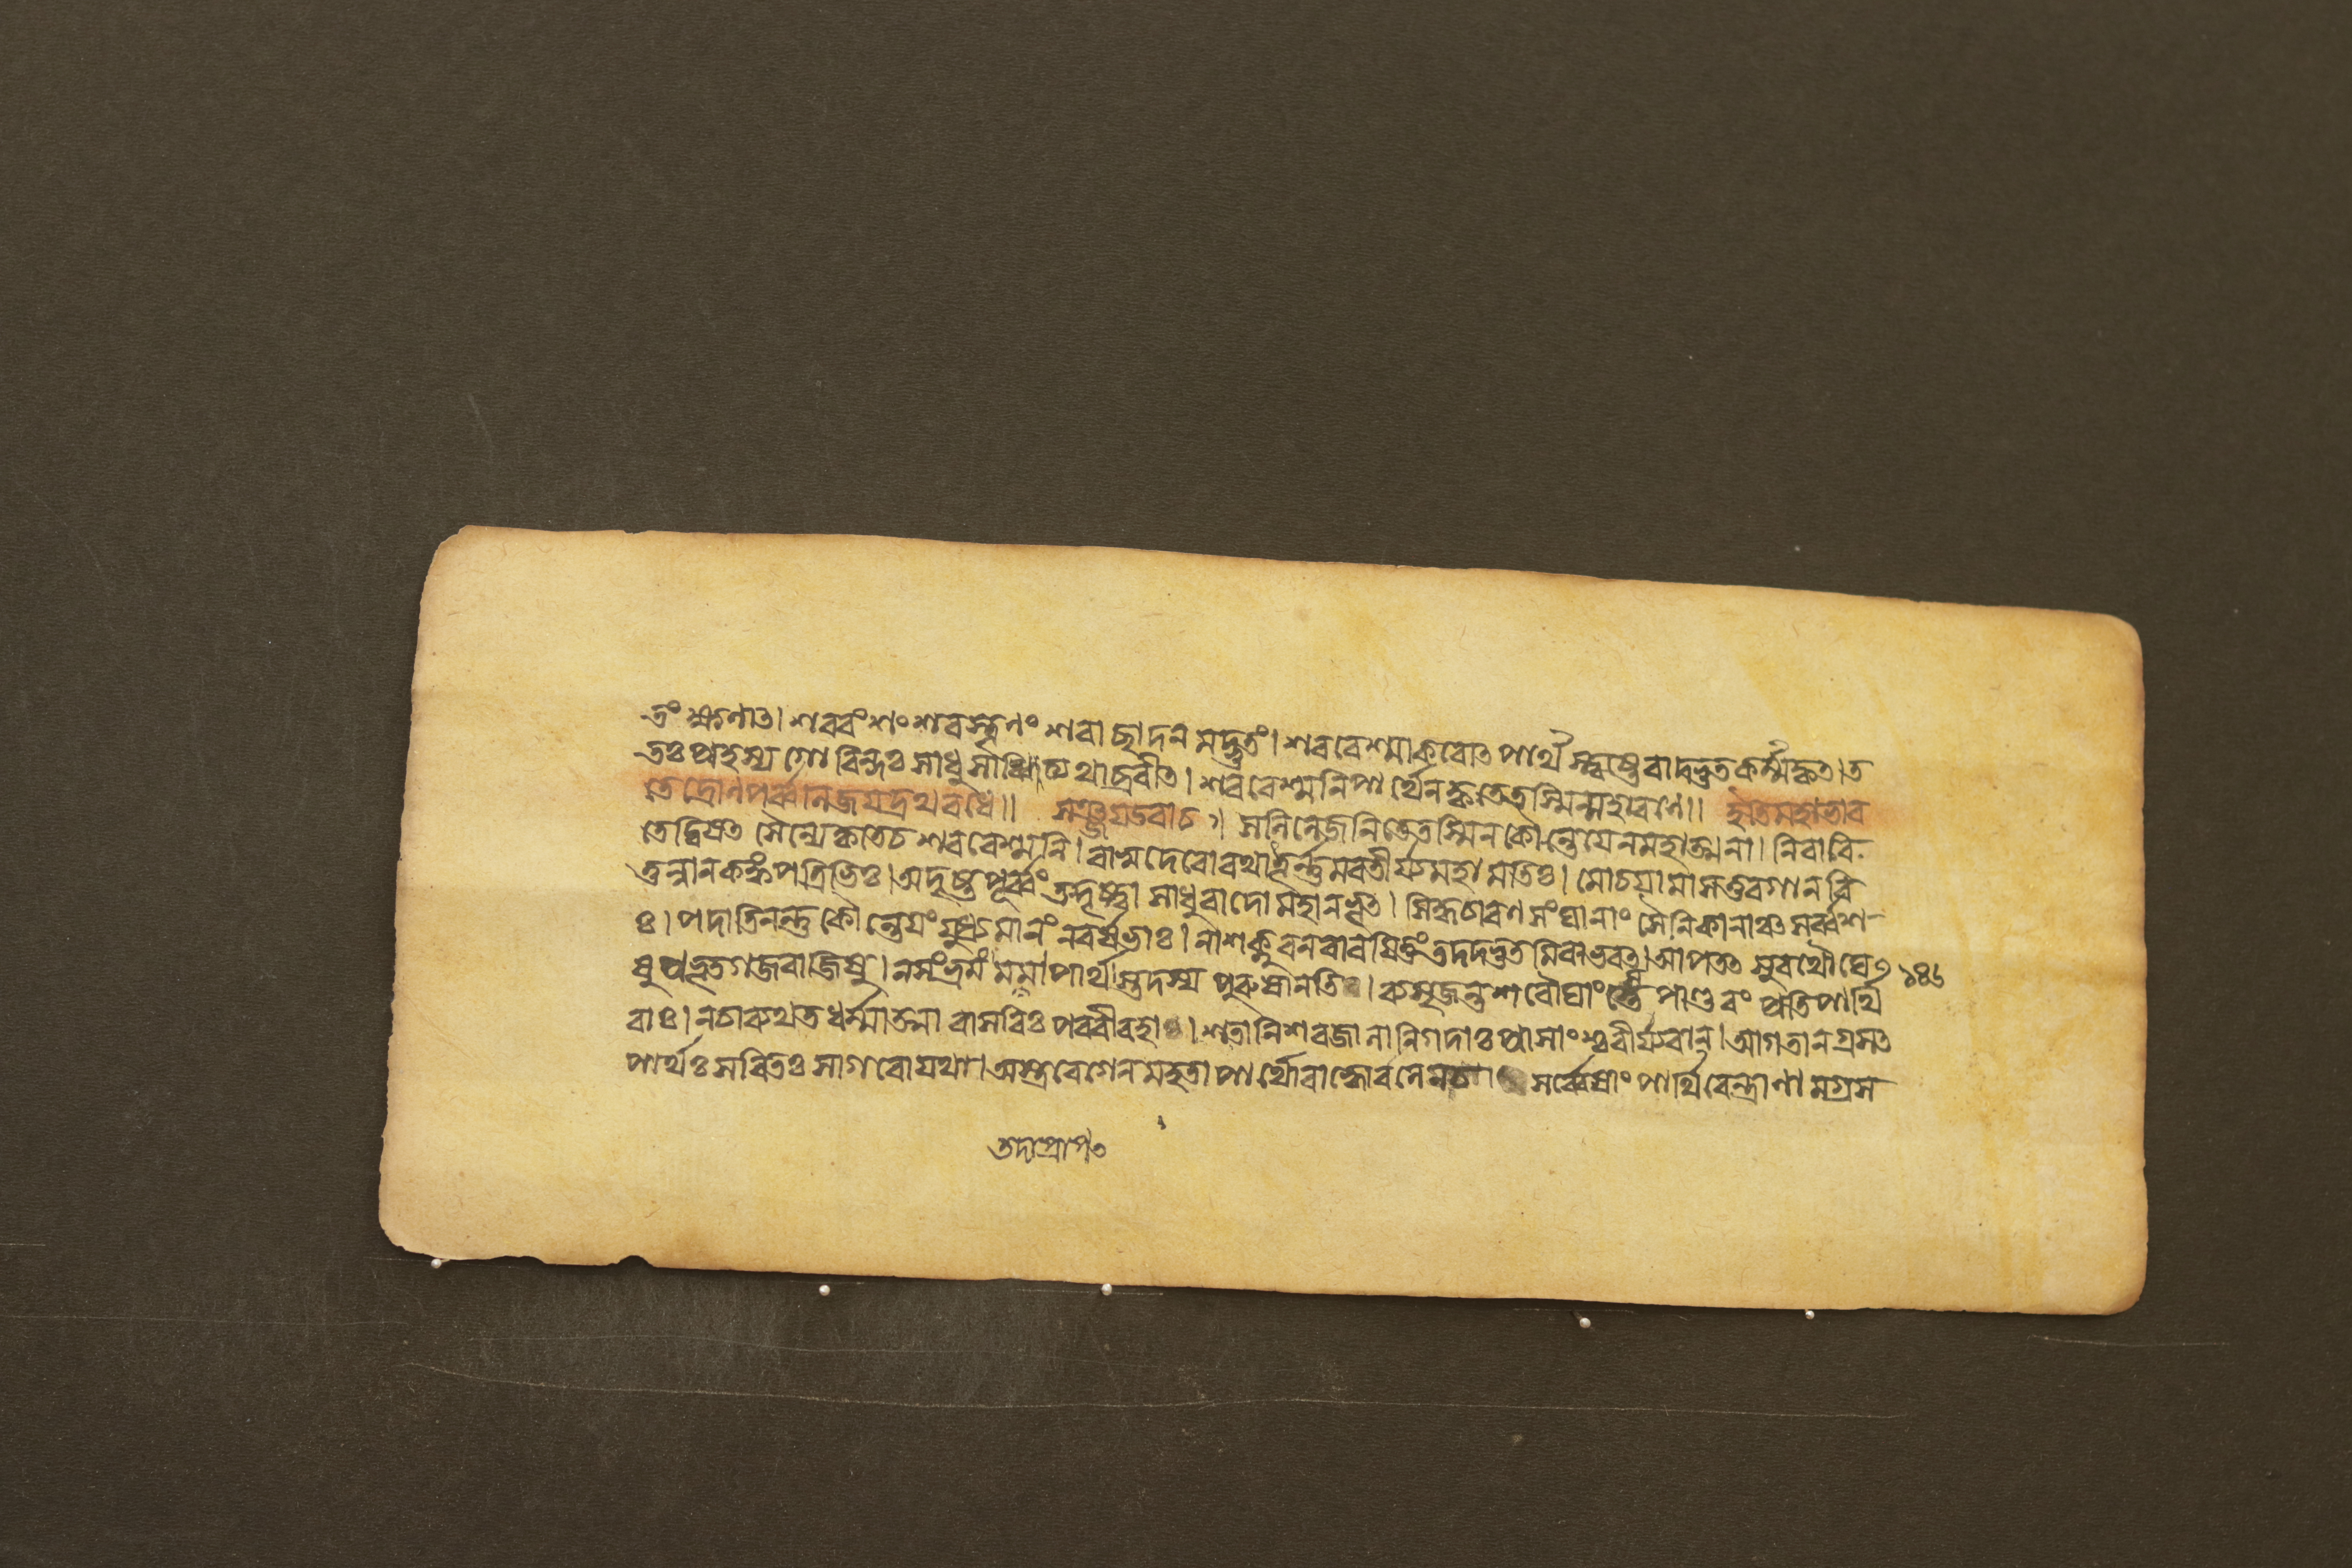 তং ক্ষণাৎ। শরবংশং শরস্থূণং শরাচ্ছাদনমদ্ভুতং। শরবেশ্মাকরোৎ পার্থস্ত্বষ্টেবাদ্ভুতকর্ম্মকৃত। ত
তঃ প্রহস্য গোবিন্দঃ সাধুসাধ্বিত্যথাব্রবীত। শরবেশ্মনি পার্থেন কৃতে তস্মিন্মহারণে॥ ইতি মহাভার
তে দ্রোণপর্ব্বনি জয়দ্রথবধে॥ সঞ্জয় উবাচ॥ সলিলে জনিতে তস্মিন কৌন্তেয়েন মহাত্মনা। নিবারি
তে দ্বিষৎ সৈন্যে কৃতে চ শরবেশ্মনি। বাসুদেবো রথাত্তূর্ন্নমবতীর্য্য মহামতিঃ। মোচয়ামাস তুরগান বি
তুন্নান কঙ্কপত্রিভিঃ। অদৃষ্টপূর্ব্বং তদ্দৃষ্ট্বা সাধুবাদো মহানভূত। সিদ্ধচারণসংঘানাং সৈনিকানাঞ্চ সর্ব্বশ
ঃ। পদাতিনন্তু কৌন্তেয়ং যুধ্যমানং নরর্ষভাঃ। নাশক্নুবন বারয়িতুং তদদ্ভুতমিবাভবত। আপতৎসু রথৌঘে ১৪৬
ষু প্রভূতগজবাজিষু। নসংভ্রমং মনা পার্থস্তদস্য পুরুষানতি। ব্যসৃজন্ত শরৌঘাংস্তে পাণ্ডবং প্রতি পার্থি
বাঃ। ন চাব্যথত ধর্ম্মাত্মা বাসবিঃ পরবীরহাঃ। শতানি শরজালানি গদাঃ প্রাসাংশ্চ বীর্য্যবান। আগতানগ্রসৎ
পার্থঃ সরিতঃ সাগরো যথা। অস্ত্রবেগেন মহতা পার্থো বাহ্বোর্বলেন চ সর্ব্বেষাং পার্থিবেন্দ্রাণামগ্রস